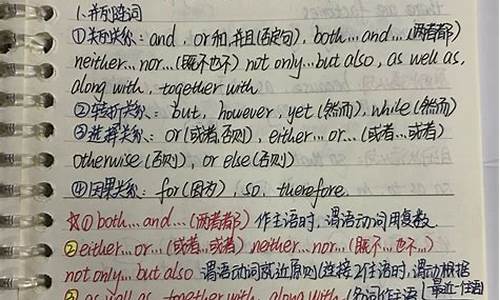 1、并列连词
①关联关系：and , or 和,并且(否定句), both...and...(两者都)
neither...nor...(既不也不) not only...but also , as well as,
along with , together with
②转折关系：but , however , yet (然而), while (然而)
③选择关系：or (或者,否则) , either...or...(或者...或者)
otherwise (否则) , or else (否则)
④因果关系：for (因为) , so , therefore.
☆① both...and...(两者都) 作主语时，谓语动词用复数.
② either...or...(或者...或者) neither...nor...(既不...也不...)
not only...but also 谓语动词就近原则 (连接2个主语时，谓动根据
最近个主语
③ as well as together with along with